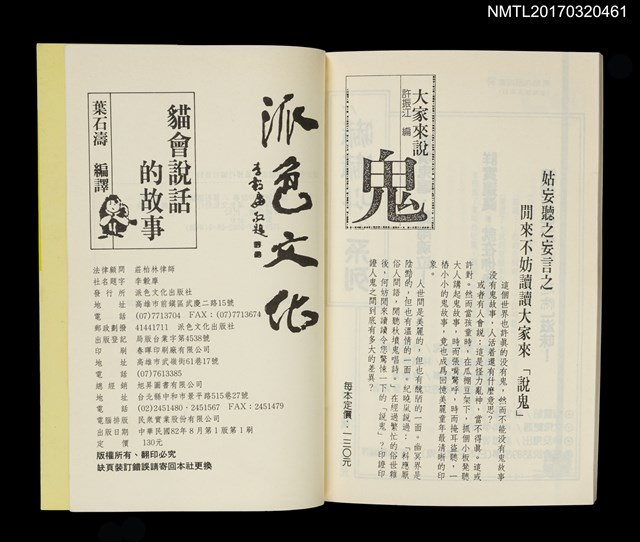 NMTL20170320461
大家來說
鬼
許振江 編
姑妄聽之妄言之
閒來不妨讀讀大家來「說鬼」
這個世界也許真的沒有鬼，然而不能沒有鬼故事
沒有鬼故事，人活着還有什麽意思？
或者有人會說：這是怪力亂神，當不得真。這或
許對。然而當孩童時，在瓜棚豆架下，抓個小板凳聽
大人講起鬼故事，時而張嘴驚呼，時而掩耳盜聽，一
情小小的鬼故事，竟也成爲回憶美麗童年最清晰的印
象。
人世間是美麗的，但也有醜陋的一面。幽冥界是
陰黯的，但也有溫情的一面。紀曉嵐說過：「料應厭
俗人間語，閒聽秋墳鬼唱詩。」在經過繁忙的俗世雜
後，何妨閒來讀讀令您驚悚一下的「說鬼」？印證印
證人鬼之間到底有多大的差異？
每本定價：一三〇元
派色文化
李穀摩敬題
貓會說話
的故事
葉石濤 編譯
法律顧問 莊柏林律師
社名題字 李穀摩
發行所 派色文化出版社
地址 高雄市前鎮區武慶二路15號
電話 (07)7713704 FAX：(07)7713674
郵政劃撥 41441711 派色文化出版社
出版登記 局版台業字第4538號
印刷 春暉印刷廠有限公司
地址 高雄市武嶺街61巷17號
電話 (07)7613385
總經銷 旭昇圖書有限公司
地址 台北縣中和市景平路515巷27號
電話 (02)2451480・2451567 FAX：2451479
電腦排版 民衆實業股份有限公司
出版日期 中華民國82年8月第1版第1刷
定價 130元
版權所有、翻印必究
缺頁裝訂錯誤請寄回本社更換